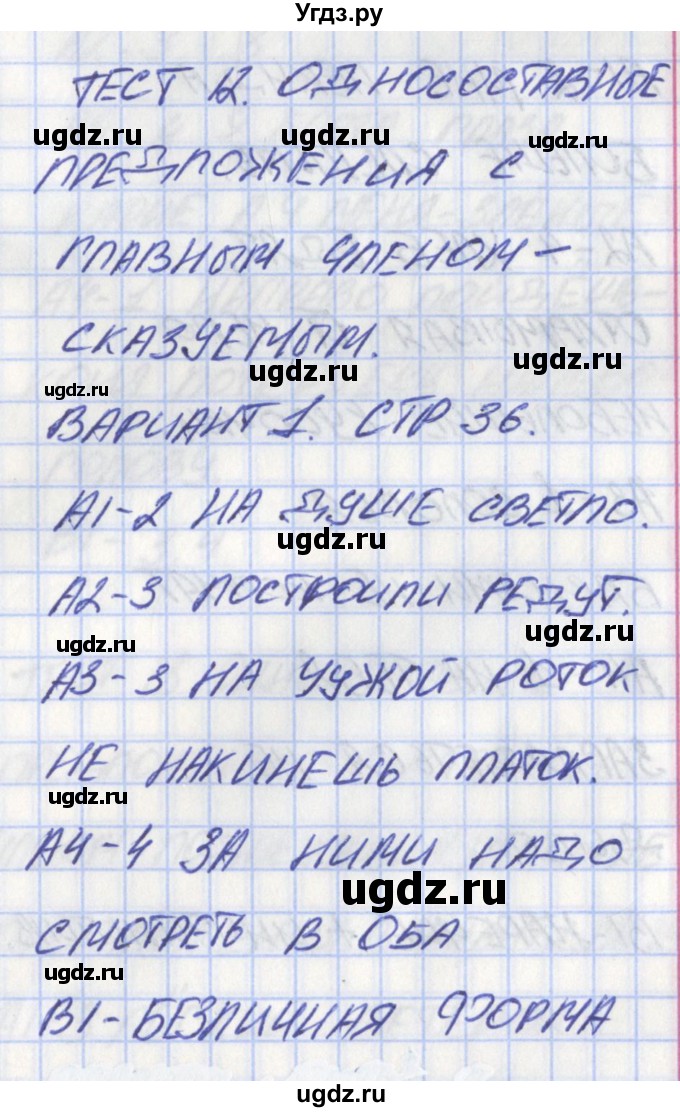 Угдз.ру
ТЕСТ 12. ОДНОСОСТАВНЫЕ
ugdz.ru ugdz.ru ugdz.ru
ПРЕДЛОЖЕНИЯ С
ГЛАВНЫМ ЧЛЕНОМ -
СКАЗУЕМЫМ.
ugdz.ru ugdz.ru ugdz.ru
ВАРИАНТ 1. СТР 36.
А1-2 НА ДУШЕ СВЕТЛО.
ugdz.ru
А2-3 ПОСТРОИЛИ РЕДУТ.
ugdz.ru ugdz.ru
А3-3 НА ЧУЖОЙ РОТОК
НЕ НАКИНЕШЬ ПЛАТОК.
ugdz.ru
А4-4 ЗА НИМИ НАДО
ugdz.ru
СМОТРЕТЬ В ОБА
ugdz.ru
В1-БЕЗЛИЧНАЯ ФОРМА
ugdz.ru